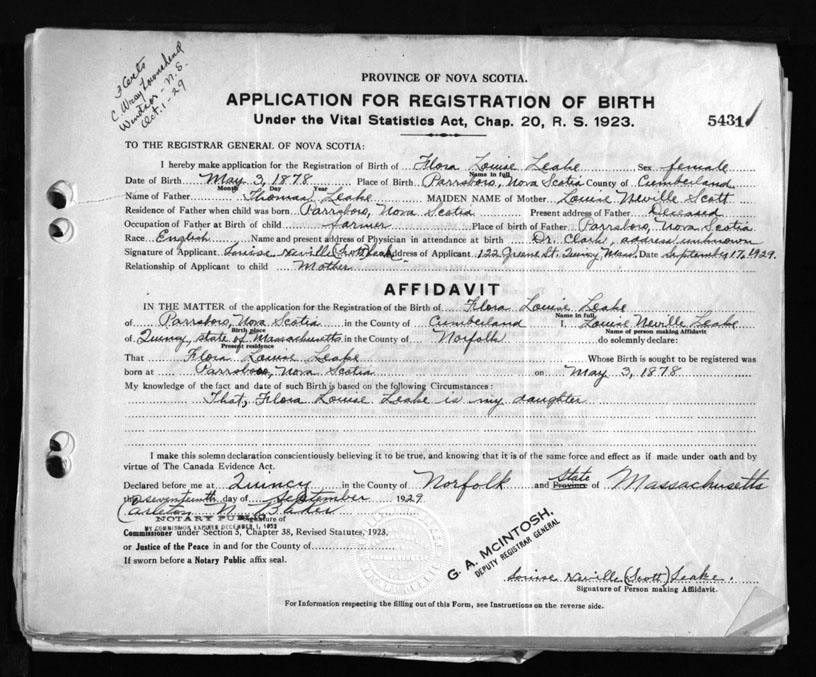 3 Certs
C. Wray Townshend
Windsor - N.S.
Oct. 1 - 29
PROVINCE OF NOVA SCOTIA.
APPLICATION FOR REGISTRATION OF BIRTH
Under the Vital Statistics Act, Chap. 20, R. S. 1923.
5431
TO THE REGISTRAR GENERAL OF NOVA SCOTIA:
I hereby make application for the Registration of Birth of Flora Louise Leake Sex female
Name in full
Date of Birth May 3, 1878 Place of Birth Parrsboro, Nova Scotia County of Cumberland
Month Day Year
Name of Father Thomas Leake MAIDEN NAME of Mother Louise Neville Scott
Residence of Father when child was born Parrsboro, Nova Scotia Present address of Father Deceased
Occupation of Father at Birth of child farmer Place of birth of Father Parrsboro, Nova Scotia
Race English Name and present address of Physician in attendance at birth Dr. Clark, address unknown
Signature of Applicant Louise Neville (Scott) Leake Address of Applicant 122 Greene St. Quincy Mass. Date September 17, 1929.
Relationship of Applicant to child Mother
AFFIDAVIT
IN THE MATTER of the application for the Registration of the Birth of Flora Louise Leake
Name in full
of Parrsboro, Nova Scotia in the County of Cumberland I, Louise Neville Leake
Birth place Name of person making Affidavit
of Quincy, state of Massachusetts in the County of Norfolk do solemnly declare:
Present residence
That Flora Louise Leake Whose Birth is sought to be registered was
born at Parrsboro, Nova Scotia on May 3, 1878
My knowledge of the fact and date of such Birth is based on the following Circumstances:
That, Flora Louise Leake is my daughter
I make this solemn declaration conscientiously believing it to be true, and knowing that it is of the same force and effect as if made under oath and by
virtue of The Canada Evidence Act.
Declared before me at Quincy in the County of Norfolk and State Province of Massachusetts
the seventeenth day of September 1929
Carleton N.
NOTARY PUBLIC Signature of
MY COMMISSION EXPIRES DECEMBER 1, 1932
Commissioner under Section 5, Chapter 38, Revised Statutes, 1923,
or Justice of the Peace in and for the County of
If sworn before a Notary Public affix seal.
G. A. McINTOSH,
DEPUTY REGISTRAR GENERAL
Louise Neville (Scott) Leake.
Signature of Person making Affidavit.
For Information respecting the filling out of this Form, see Instructions on the reverse side.